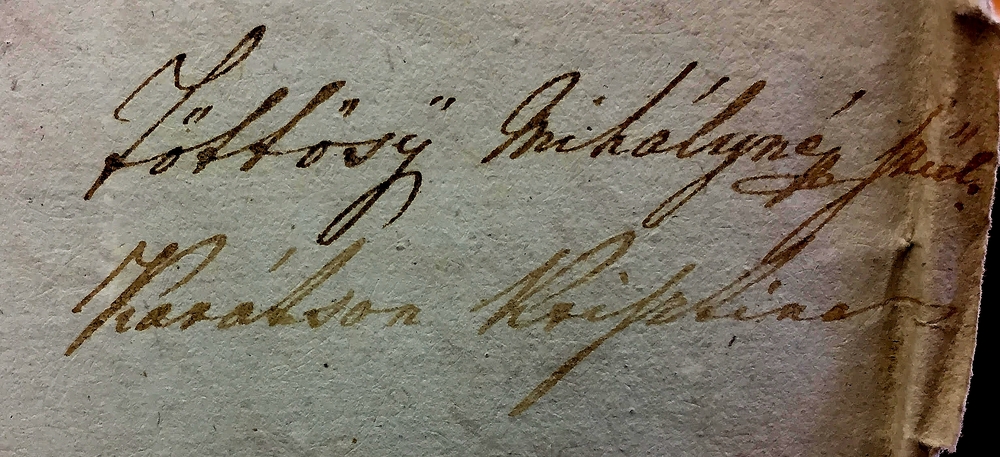 Töttösÿ Mihályné szül.
Karátson Krisztina